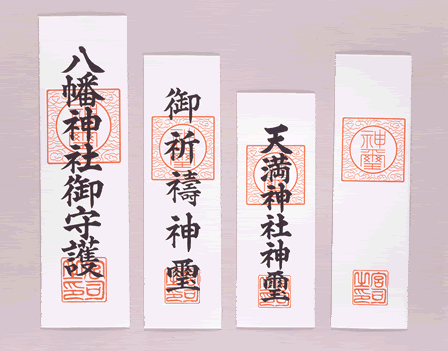 八幡神社御守護
御祈禱神璽
天満神社神璽
神璽
宮司之印